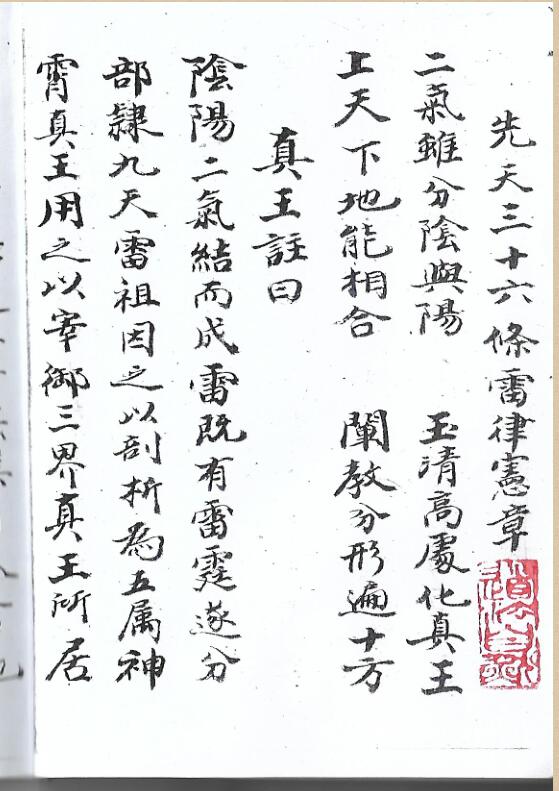 先天三十六條雷律憲章
二氣雖分陰與陽 玉清高處化真王
上天下地能相合 闡教分形遍十方
真王註曰
陰陽二氣結而成雷既有雷霆遂分
部隸九天雷祖因之以剖析為五属神
霄真王用之以宰御三界真王所居